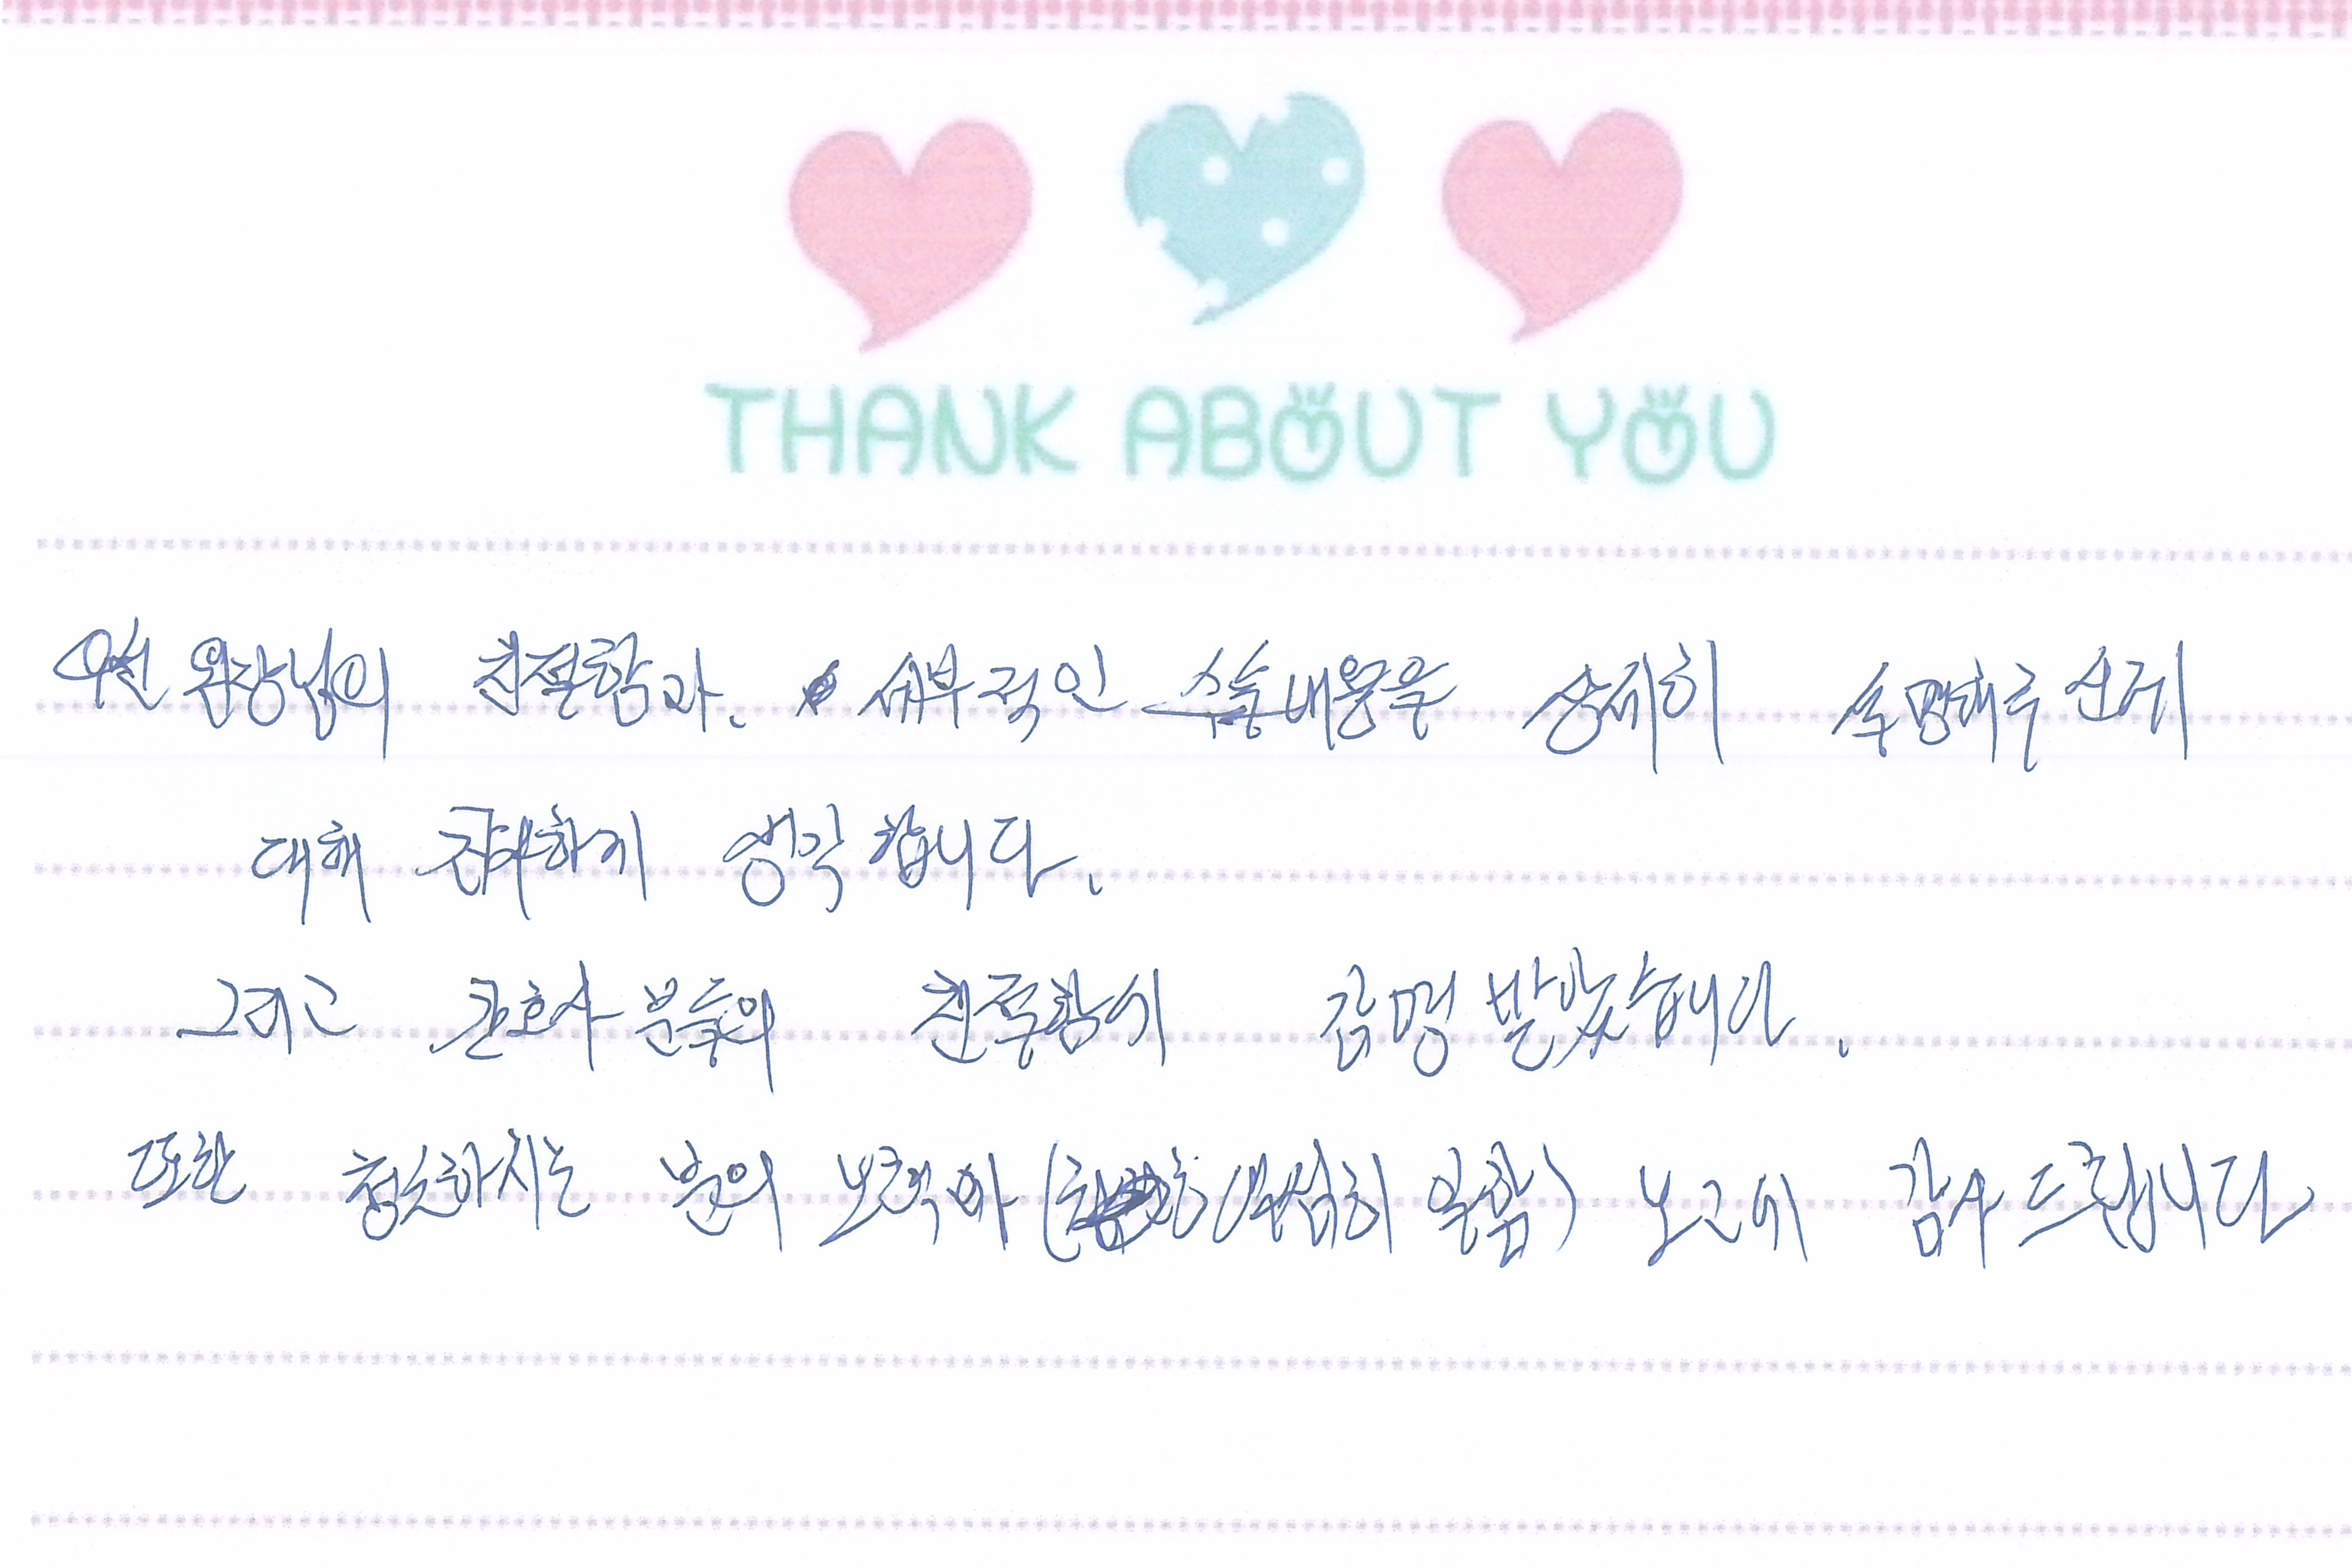 THANK ABOUT YOU
원장님의 친절함과. 세부적인 수술내용을 상세히 설명해주신데
대해 감사하게 생각합니다.
그리고 간호사분들의 친절함에 감명 받았습니다.
또한 청소하시는 분의 노력과 열심히 일함) 노고에 감사드립니다